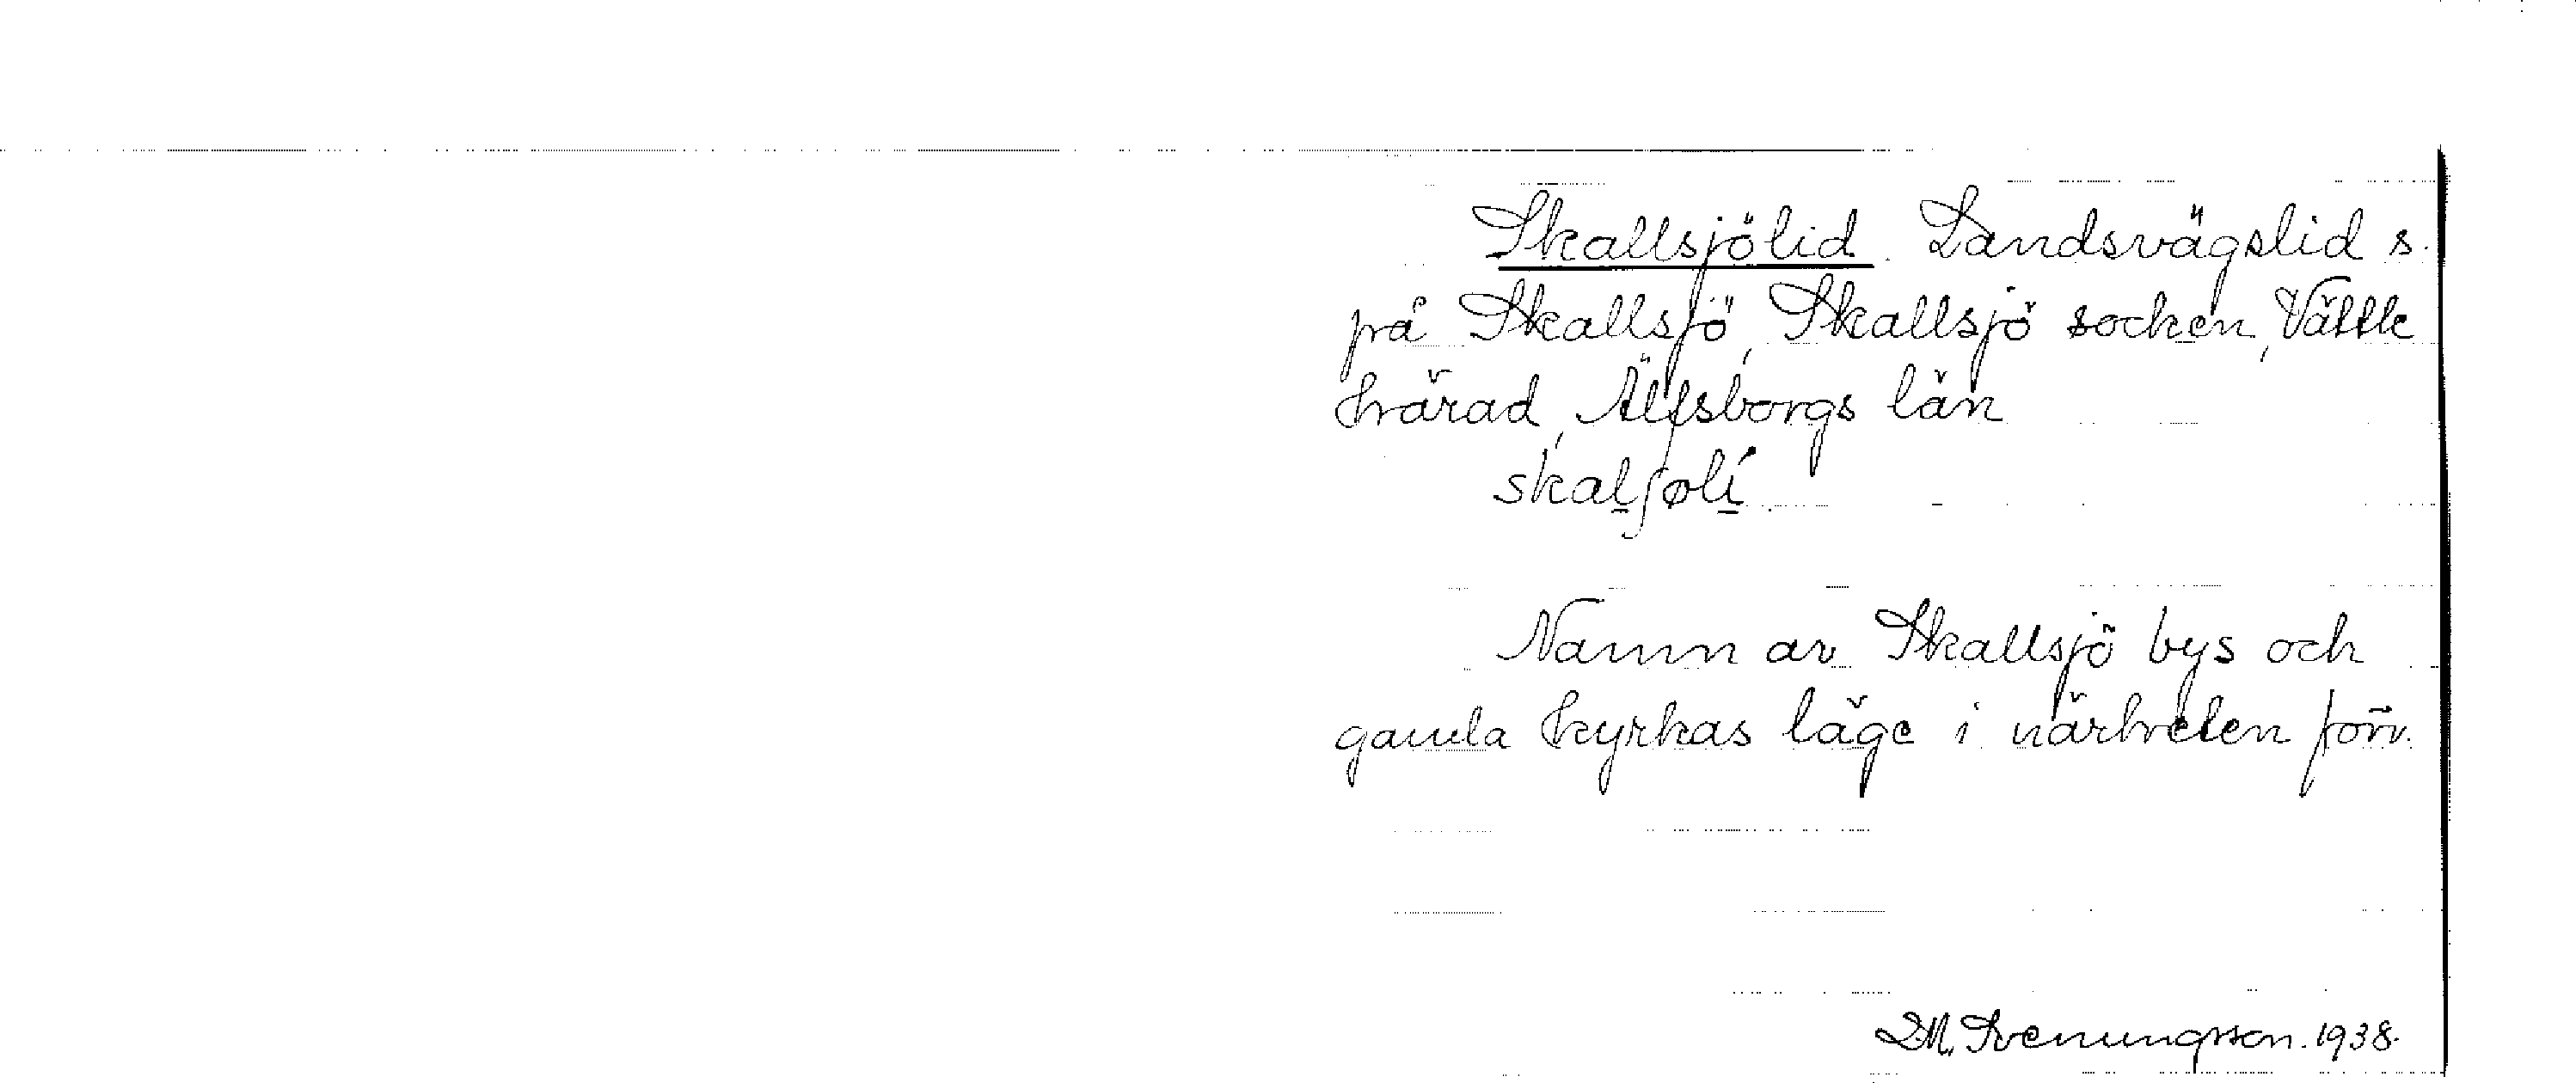 Skallsjölid. Landsvägslid s.
på Skallsjö, Skallsjö socken, Vättle
härad, Älfsborgs län
skalʃølí.
Namn av Skallsjö bys och
gamla kyrkas läge i närheten förr.
D.M. Svenungsson. 1938.